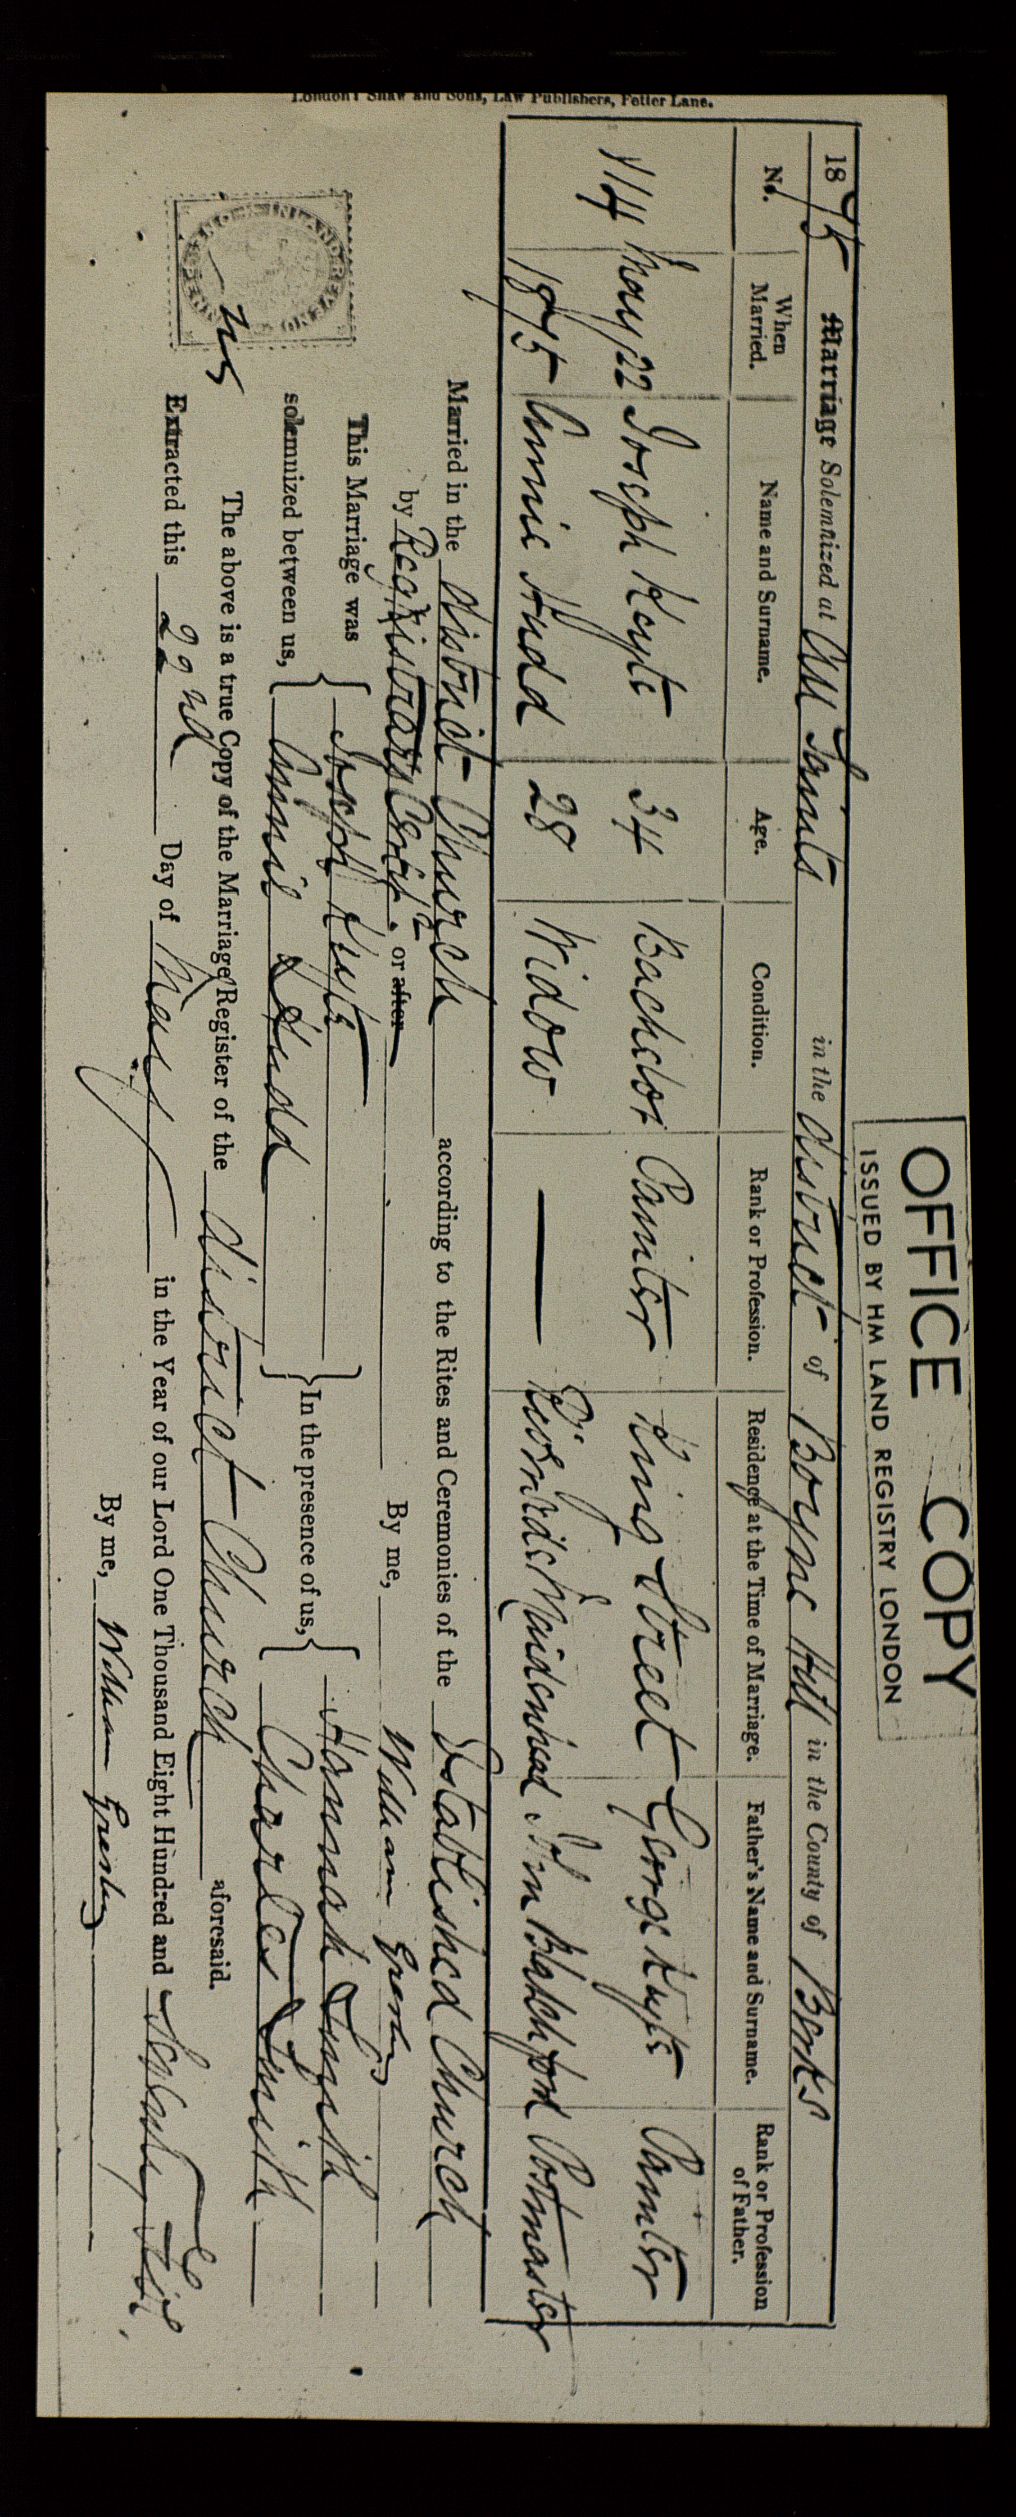 OFFICE COPY
ISSUED BY HM LAND REGISTRY LONDON
1875 Marriage Solemnized at All Saints in the district of Boyne Hill in the County of Berks
No. When Married. Name and Surname. Age. Condition. Rank or Profession. Residence at the Time of Marriage. Father's Name and Surname. Rank or Profession of Father.
114 May 22 Joseph Keyte 34 Bachelor Painter King Street George Keyte Painter
1875 Annie Hudd 28 Widow — Maidenhead John Blatchford Postmaster
Married in the district Church according to the Rites and Ceremonies of the Established Church
by Registrars Certif. or after By me, William Gresley
This Marriage was solemnized between us, { Joseph Keyte } In the presence of us, { Hannah Smith
Annie Hudd Charles Smith
The above is a true Copy of the Marriage Register of the district Church aforesaid.
Extracted this 22nd Day of May in the Year of our Lord One Thousand Eight Hundred and Seventy Five.
By me, William Gresley
INLAND REVENUE
London: Shaw and Sons, Law Publishers, Fetter Lane.